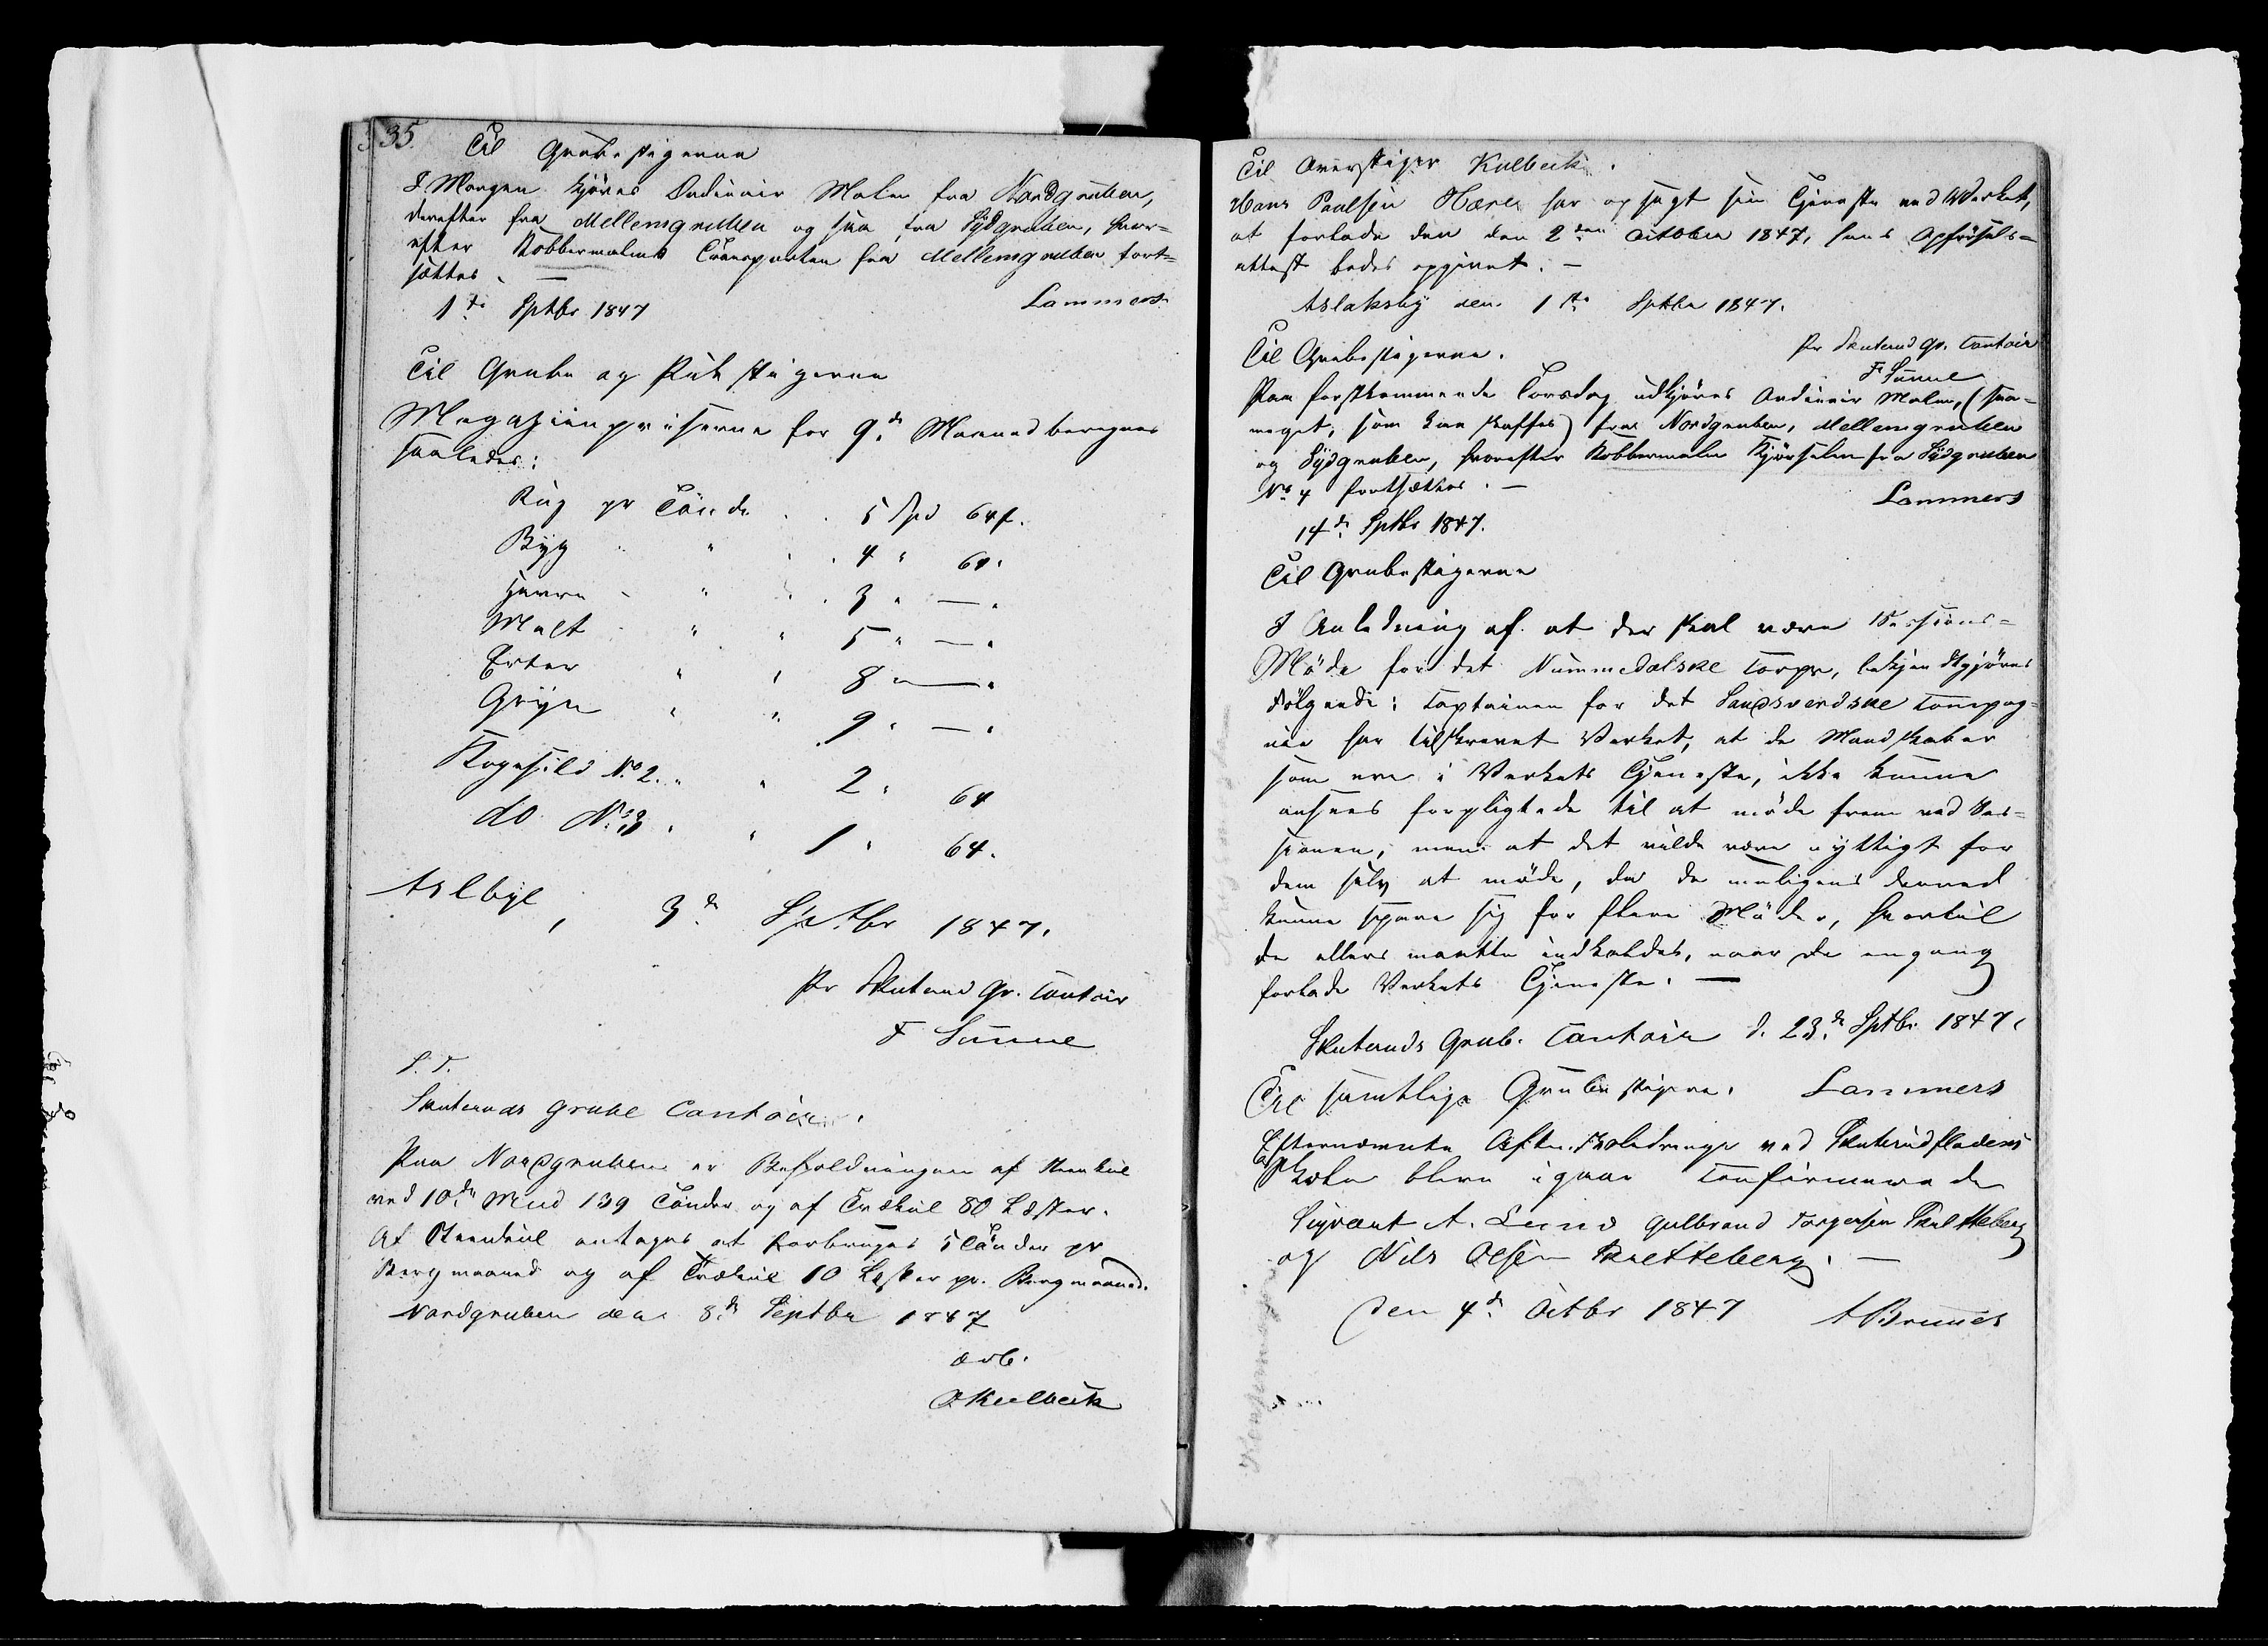 35
Til Grubestigerne
I Morgen kjöres Ordinair Malm fra Nordgruben,
derefter fra Mellemgruben og saa fra Sydgruben, hvor-
efter Kobbermalms Transporten fra Mellemgruben fort-
sættes. —
1ste Septbr 1847 Lammers
Til Grube og Puk stigerne
Magazinpriserne for 9de Maaned beregnes
saaledes:
Rug pr Tönde . . 5 Spd 64 s.
Byg " " . 4 " 64.
Havre " " . 3 " — "
Malt " " 5 " — "
Erter " " 8 " — "
Gryn " " 9 " — "
Kogesild No 2. " " 2 " 64
do No 3 " " 1 " 64.
Aslbye, 3de Septbr 1847.
Pr Skuterud Gr. Contoir
F Sunne
S. T.
Skuteruds Grube Contoir.
Paa Nordgruben er Beholdningen af Steenkul
ved 10de Mnd 139 Tönder og af Trækul 80 Læster.
Af Steenkul antages at forbruges 5 Tönder pr
Bergmaaned og af Trækul 10 Læster pr. Bergmaaned.
Nordgruben den 8de Septbr 1847
ærb.
Kulbeck
Til Overstiger Kulbeck.
Hans Paulsen Hæres har opsagt sin Tjeneste ved Værket,
at forlade den den 2den October 1847, hans Opförsels-
attest bedes opgivet. —
Aslaksby den 1ste Septbr 1847.
Pr Skuterud Gr. Contoir
F Sunne
Til Grubestigerne.
Paa förstkommende Torsdag udkjöres Ordinair Malm, (saa-
meget, som kan skaffes) fra Nordgruben, Mellemgruben
og Sydgruben, hvorefter Kobbermalm Kjörselen fra Sydgruben
No 4 fortsættes. —
14de Septbr 1847. Lammers
Til Grubestigerne
I Anledning af at der skal være Sessions-
Möde for det Nummedalske Corps, bekjendtgjöres
Fölgende: Captainen for det Sandsverdske Compag-
nie har tilskrevet Verket, at de Mandskaber
som ere i Verkets Tjeneste, ikke kunne
ansees forpligtede til at möde frem ved Ses-
sionen, men at det vilde være nyttigt for
dem selv at möde, da de muligens derved
kunne spare sig for flere Möder, hvortil
de ellers maatte indkaldes, naar de engang
forlade Verkets Tjeneste. —
Skuteruds Grub. Contoir d. 23de Septbr 1847.
Til samtlige Grubestigere. Lammers
Efternævnte Aften. Skoledrenge ved Skuterudfladens
Skole bleve igaar Confirmerede
Sigvart A. Lund Gulbrand Torgersen Skretteberg
og Nils Olsen Skretteberg. —
Den 4de Octbr 1847 A Bruunes